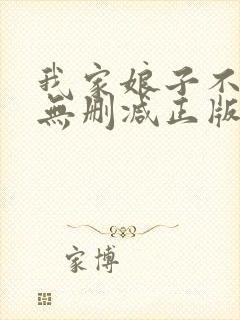 我家娘子不
無删减正版
家博